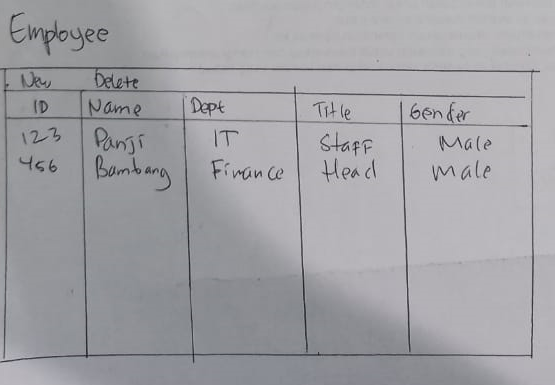 Employee
New Delete
ID Name Dept Title Gender
123 Panji IT Staff Male
456 Bambang Finance Head Male